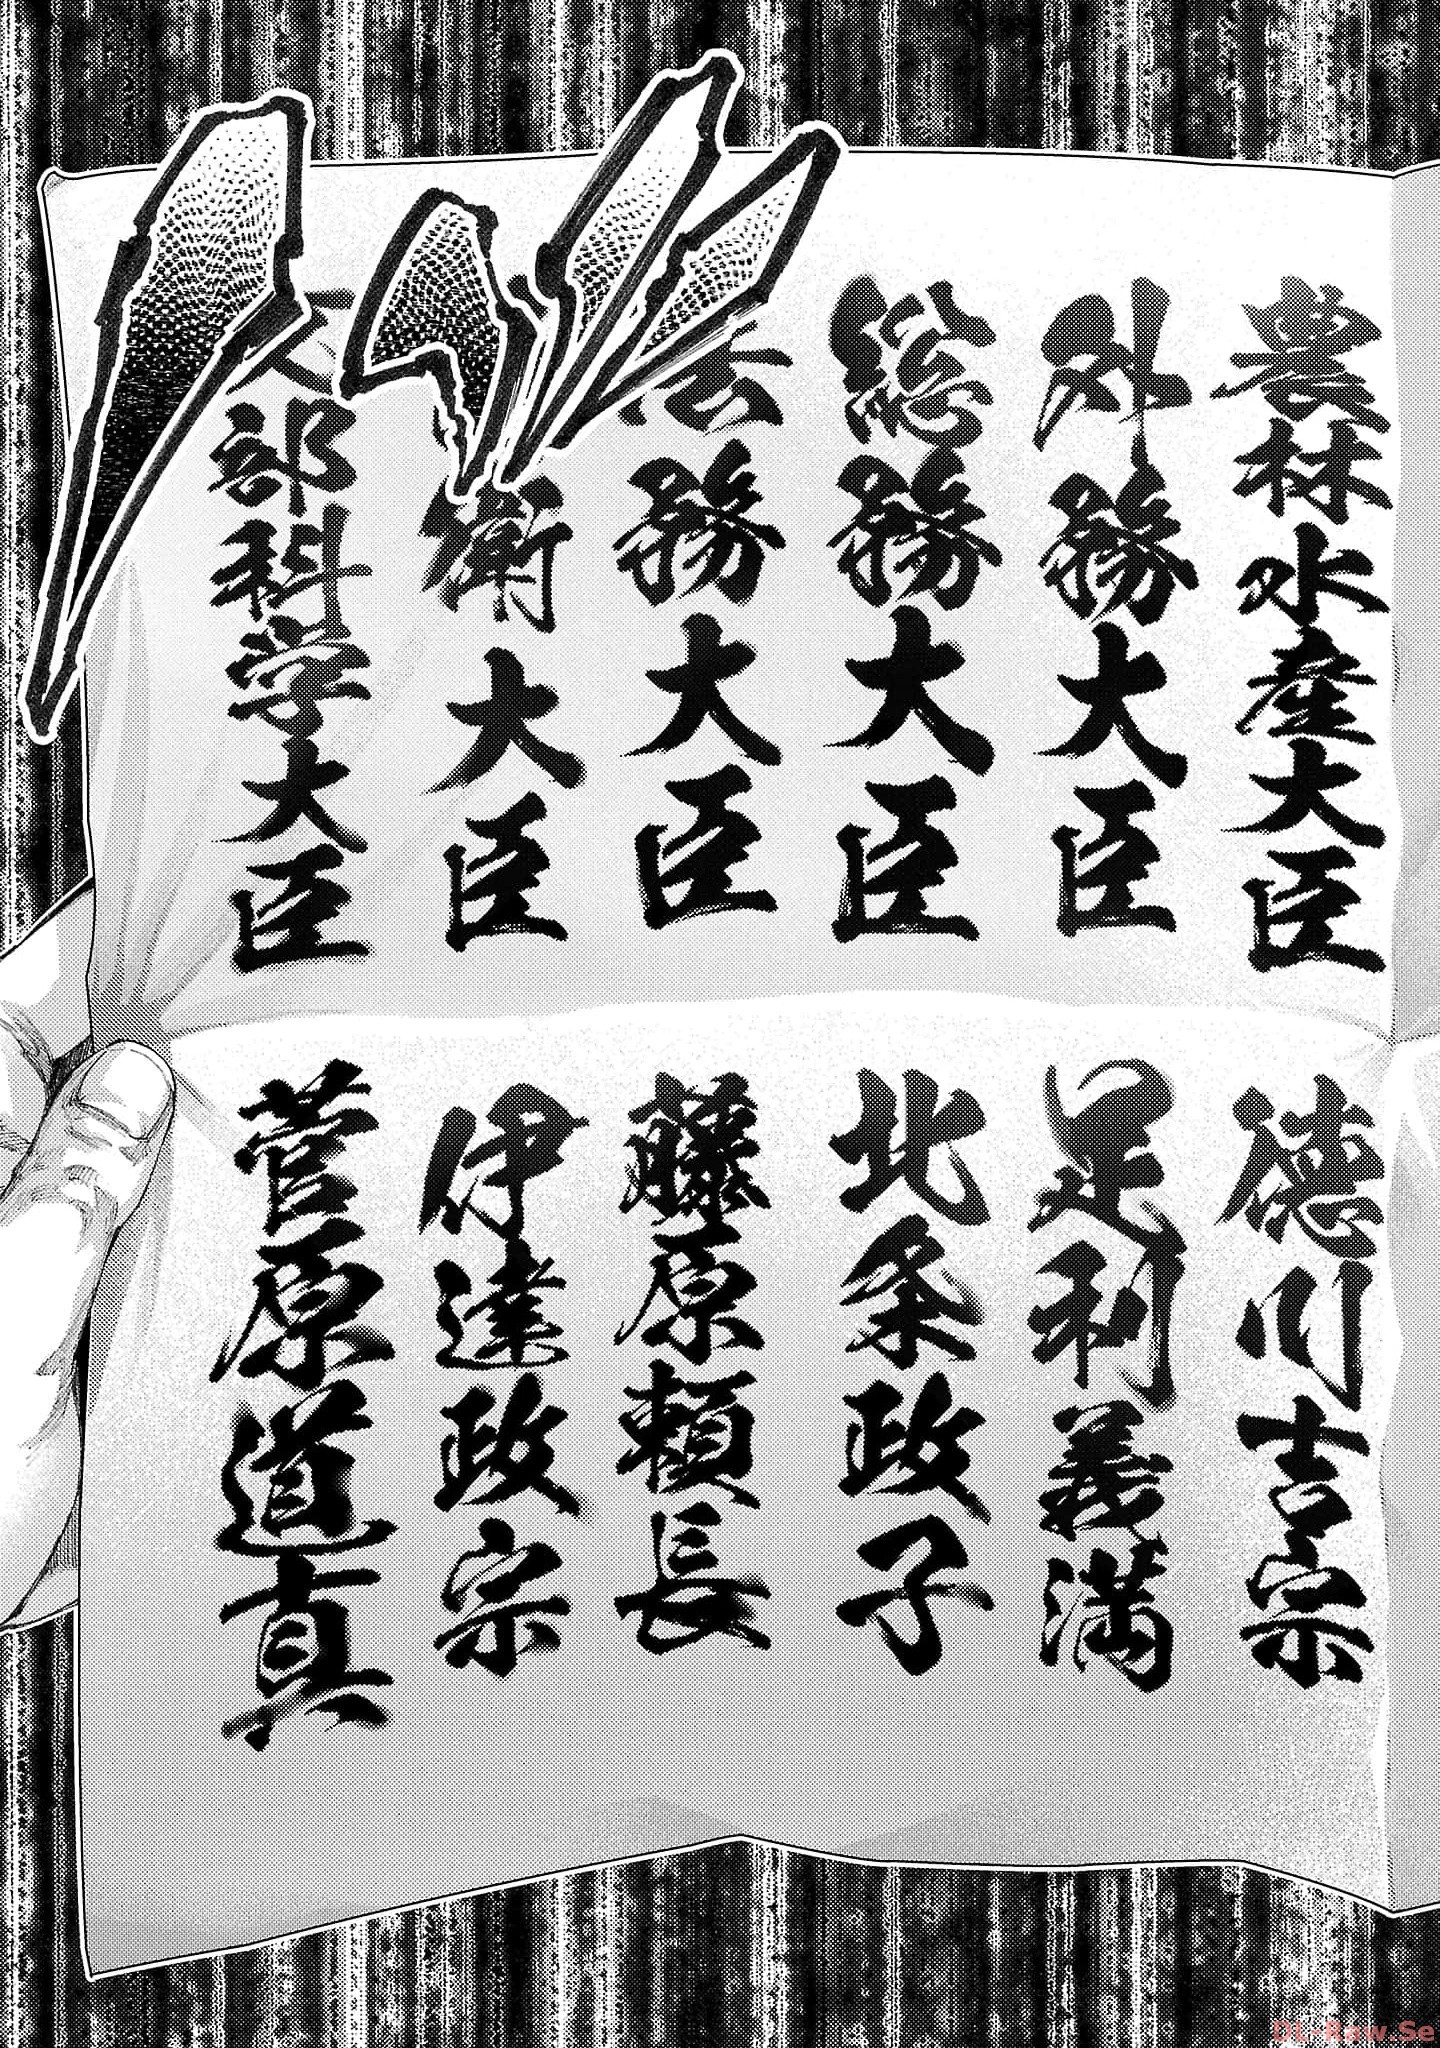 農林水産大臣
徳川吉宗
外務大臣
足利義満
総務大臣
北条政子
法務大臣
藤原頼長
衛大臣
伊達政宗
文部科学大臣
菅原道真
DL-Raw.Se